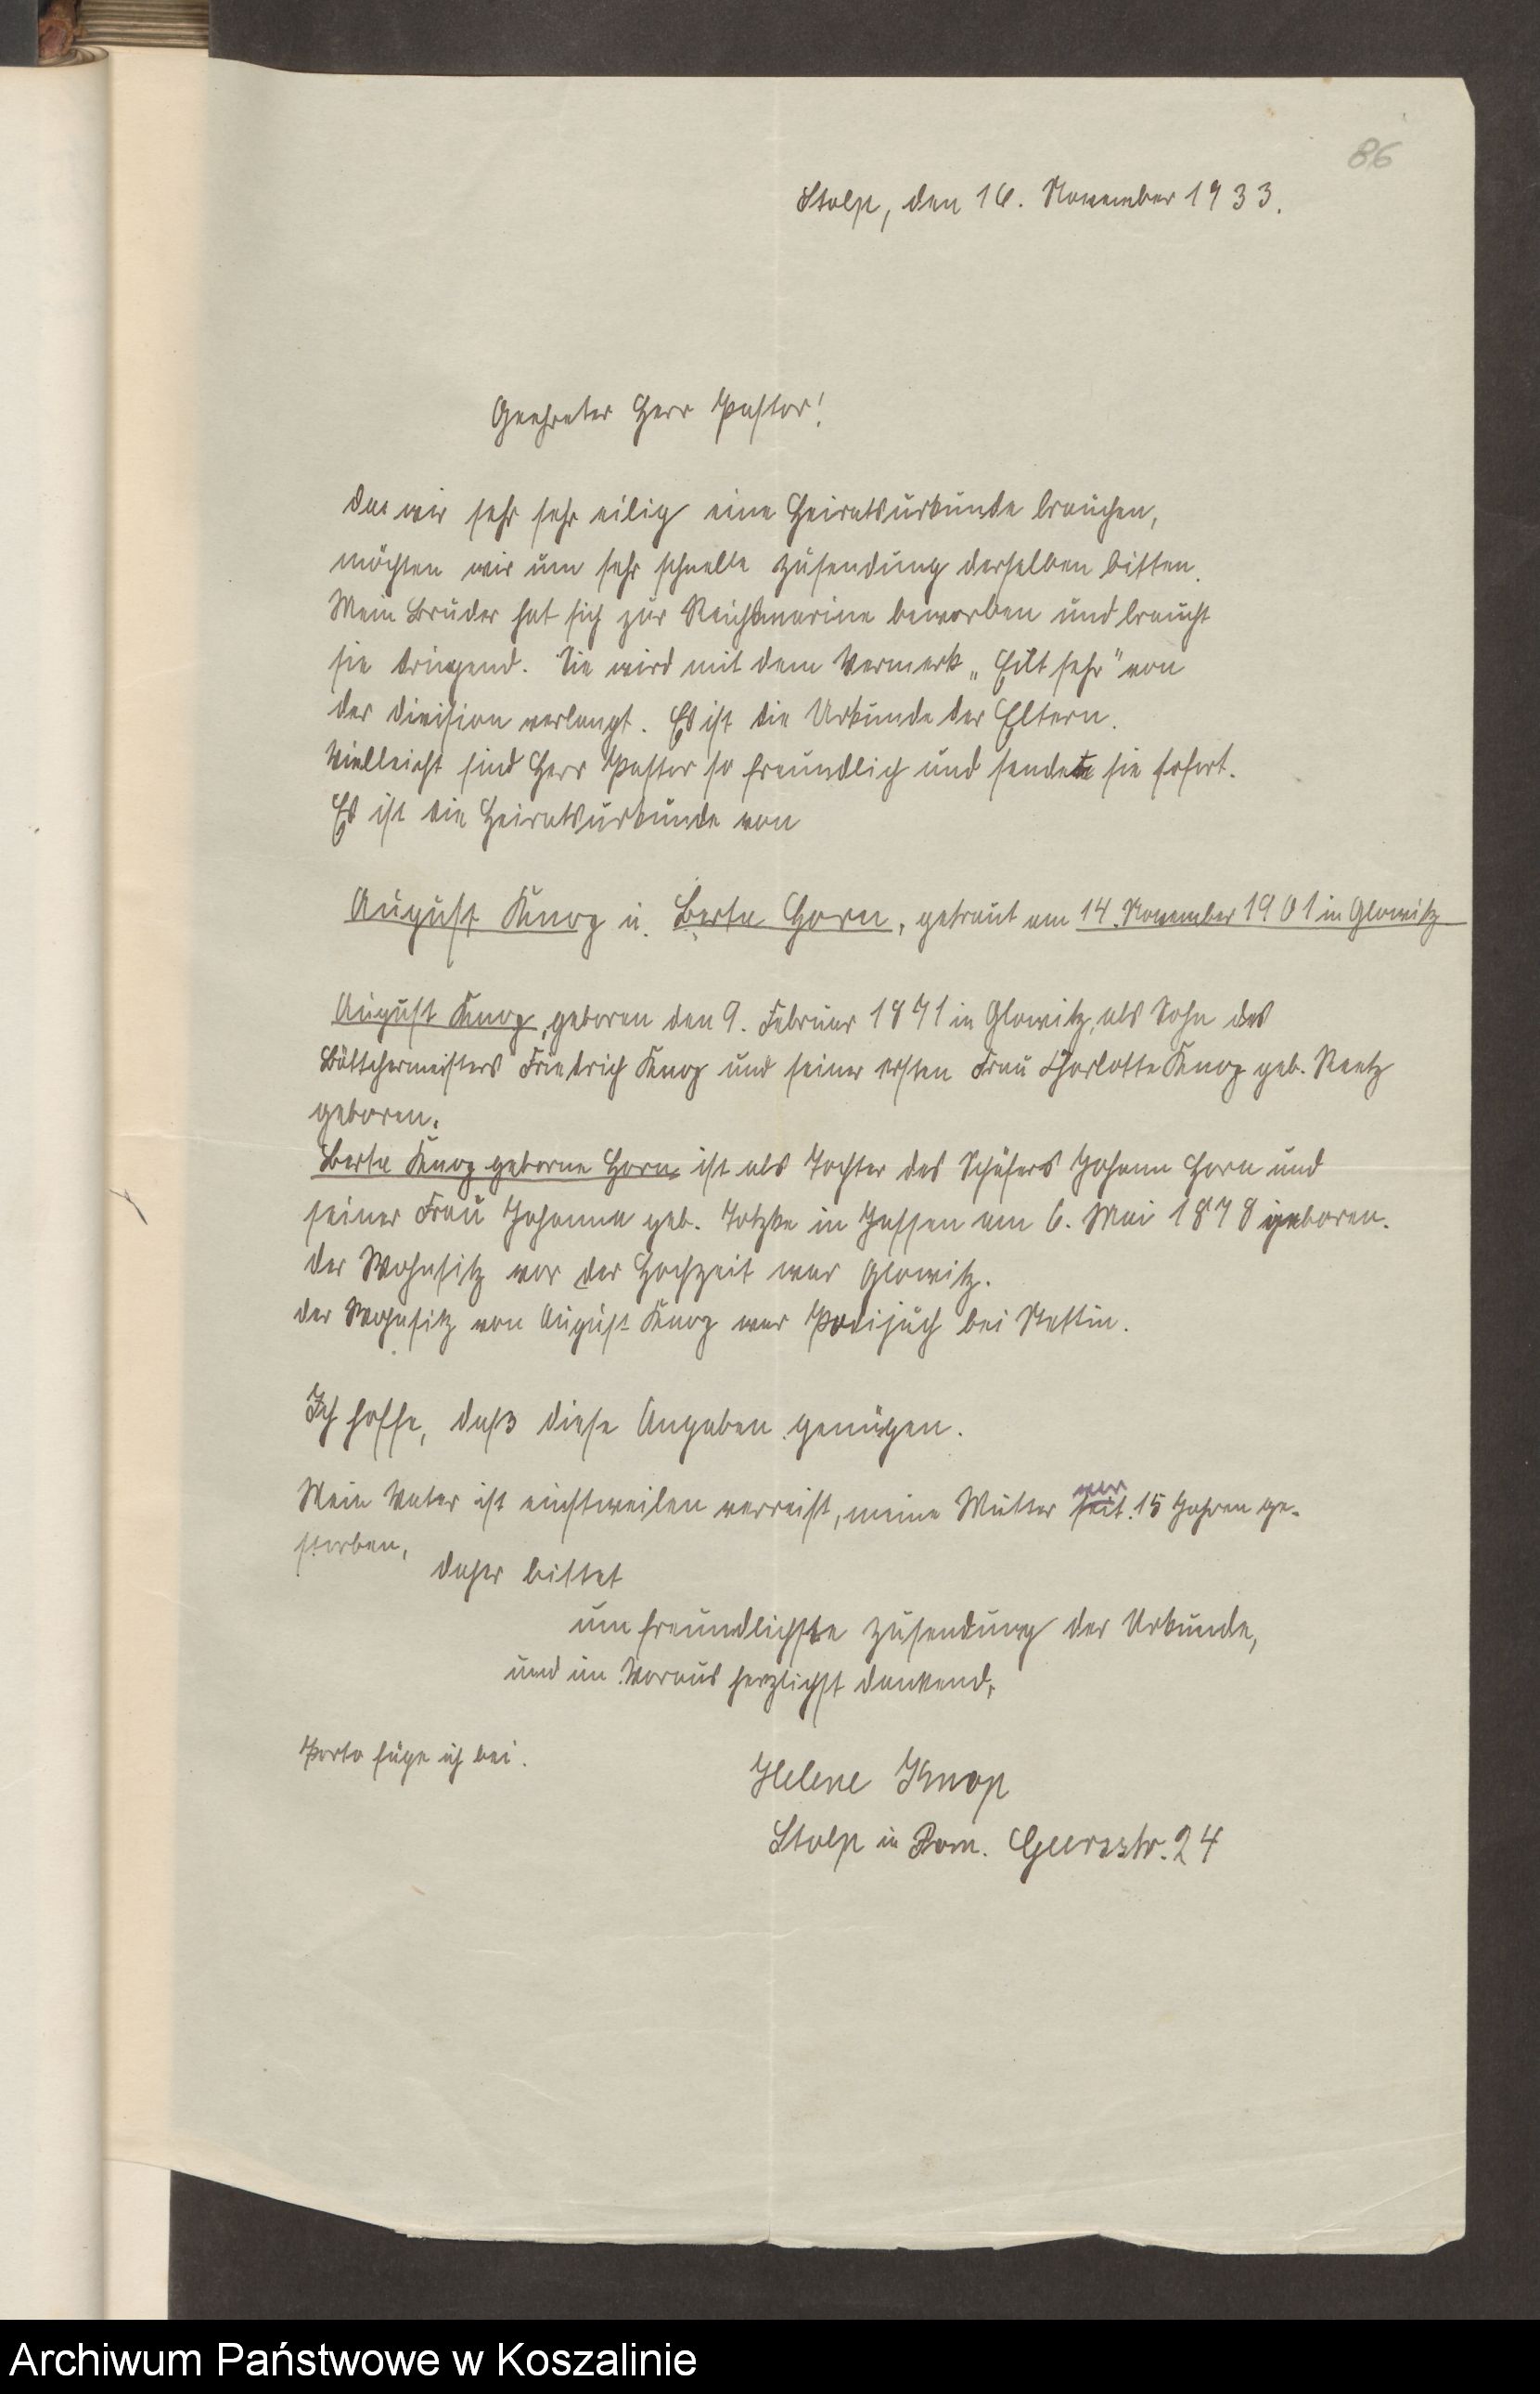 86
Stolp, den 16. November 1933.
Geehrter Herr Pastor!
Da wir sehr sehr eilig eine Heiratsurkunde brauchen,
möchten wir um sehr schnelle Zusendung derselben bitten.
Mein Bruder hat sich zur Reichsmarine beworben und braucht
sie dringend. Sie wird mit dem Vermerk „Eilt sehr" von
der Division verlangt. Es ist die Urkunde der Eltern.
Vielleicht sind Herr Pastor so freundlich und senden sie sofort.
Es ist die Heiratsurkunde von
August Knop u. Berta Horn, getraut am 14. November 1901 in Glowitz
August Knop, geboren den 9. Februar 1871 in Glowitz, als Sohn des
Böttchermeisters Friedrich Knop und seiner ersten Frau Charlotte Knop geb. Reetz
geboren.
Berta Knop geborne Horn ist als Tochter des Schäfers Johann Horn und
seiner Frau Johanna geb. Totzke in Jassen am 6. Mai 1878 geboren.
Der Wohnsitz vor der Hochzeit war Glowitz.
Der Wohnsitz von August Knop war Podijuch bei Stettin.
Ich hoffe, daß diese Angaben genügen.
Mein Vater ist einstweilen verreist, meine Mutter seit vor 15 Jahren ge-
storben,
daher bittet
um freundlichste Zusendung der Urkunde,
und im Voraus herzlichst dankend,
Porto füge ich bei.
Helene Knop
Stolp in Pom. 24
Archiwum Państwowe w Koszalinie